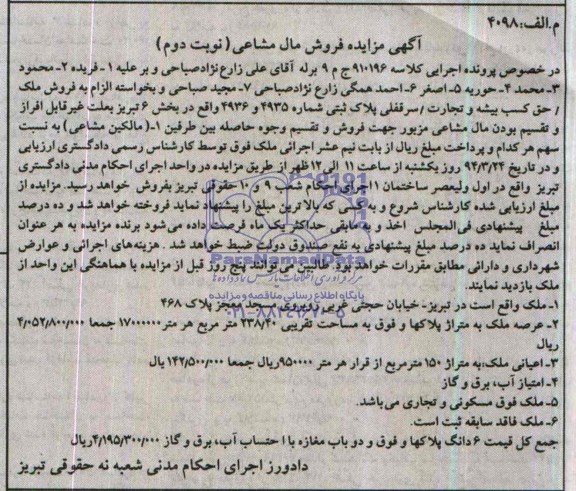 م.الف: ۴۰۹۸
آگهی مزایده فروش مال مشاعی (نوبت دوم)
در خصوص پرونده اجرایی کلاسه ۹۱۰۱۹۶ ج م ۹ برله آقای علی زارع نژادصباحی و بر علیه ۱- فریده ۲- محمود
۳- محمد ۴- حوریه ۵- اصغر ۶- احمد همگی زارع نژادصباحی ۷- مجید صباحی و بخواسته الزام به فروش ملک
/ حق کسب بیشه و تجارت / سرقفلی پلاک ثبتی شماره ۴۹۳۵ و ۴۹۳۶ واقع در بخش ۶ تبریز بعلت غیرقابل افراز
و تقسیم بودن مال مشاعی مزبور جهت فروش و تقسیم وجوه حاصله بین طرفین ۱-(مالکین مشاعی) به نسبت
سهم هر کدام و پرداخت مبلغ ریال از بابت نیم عشر اجرائی ملک فوق توسط کارشناس رسمی دادگستری ارزیابی
و در تاریخ ۹۴/۳/۲۴ روز یکشنبه از ساعت ۱۱ الی ۱۲ ظهر از طریق مزایده در واحد اجرای احکام مدنی دادگستری
تبریز واقع در اول ولیعصر ساختمان ۱۱جرای احکام شعب ۹ و ۱۰ حقوقی تبریز بفروش خواهد رسید. مزایده از
مبلغ ارزیابی شده کارشناس شروع و به کسی که بالاترین مبلغ را پیشنهاد نماید فروخته خواهد شد و ده درصد
مبلغ پیشنهادی فی المجلس اخذ و به مابقی حداکثر یک ماه فرصت داده می شود برنده مزایده به هر عنوان
انصراف نماید ده درصد مبلغ پیشنهادی به نفع صندوق دولت ضبط خواهد شد . هزینه های اجرائی و عوارض
شهرداری و دارائی مطابق مقررات خواهد بود. طالبین می توانند پنج روز قبل از مزایده با هماهنگی این واحد از
ملک بازدید نمایند.
۱- ملک واقع است در تبریز- خیابان حجتی غربی روبروی مسجد معجز پلاک ۴۶۸
۲- عرصه ملک به متراژ پلاکها و فوق به مساحت تقریبی ۲۳۸/۴۰ متر مربع هر متر ۱۷۰۰۰۰۰۰ جمعا ۴/۰۵۲/۸۰۰/۰۰۰
ریال
۳- اعیانی ملک: به متراژ ۱۵۰ مترمربع از قرار هر متر ۹۵۰۰۰۰ ریال جمعا ۱۴۲/۵۰۰/۰۰۰ یال
۴- امتیاز آب، برق و گاز
۵- ملک فوق مسکونی و تجاری می باشد.
۶- ملک فاقد سابقه ثبت است.
جمع کل قیمت ۶ دانگ پلاکها و فوق و دو باب مغازه با احتساب آب، برق و گاز ۴/۱۹۵/۳۰۰/۰۰۰ ریال
دادورز اجرای احکام مدنی شعبه نه حقوقی تبریز
ParsNamadData
پایگاه اطلاع رسانی مناقصه و مزایده